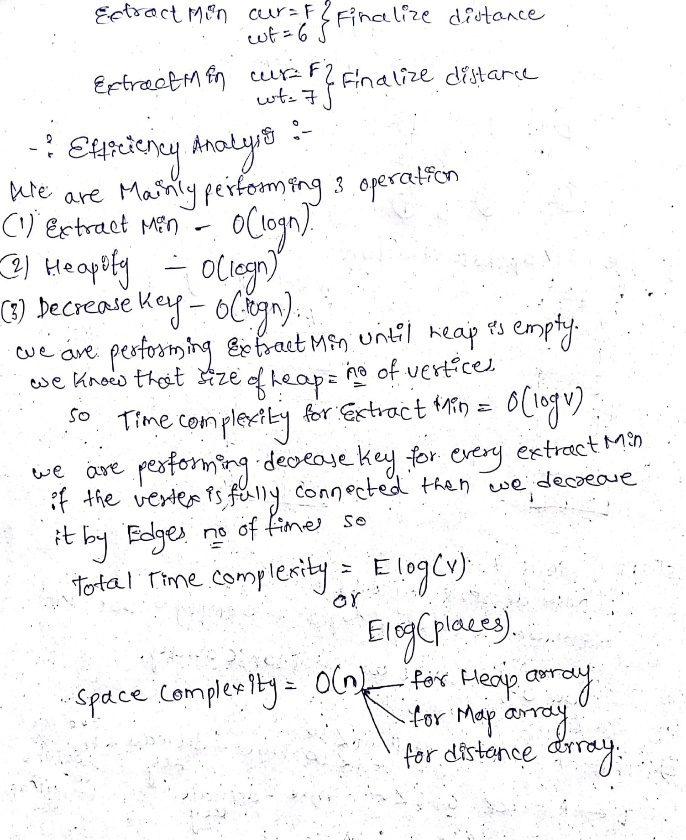 Extract Min cur = F } Finalize distance
wt = 6
Extract Min cur = F } Finalize distance
wt = 7
-: Efficiency Analysis :-
We are Mainly performing 3 operation
(1) Extract Min - O(logn).
(2) Heapify - O(logn)
(3) Decrease Key - O(logn).
we are performing Extract Min until heap is empty.
we know that size of heap = no of vertices
so Time complexity for Extract Min = O(logv)
we are performing decrease key for every extract Min
if the vertex is fully connected then we decrease
it by Edges no of times so
Total Time complexity = E log(v).
or
E log(places).
Space Complexity = O(n) for Heap array
for Map array
for distance array.